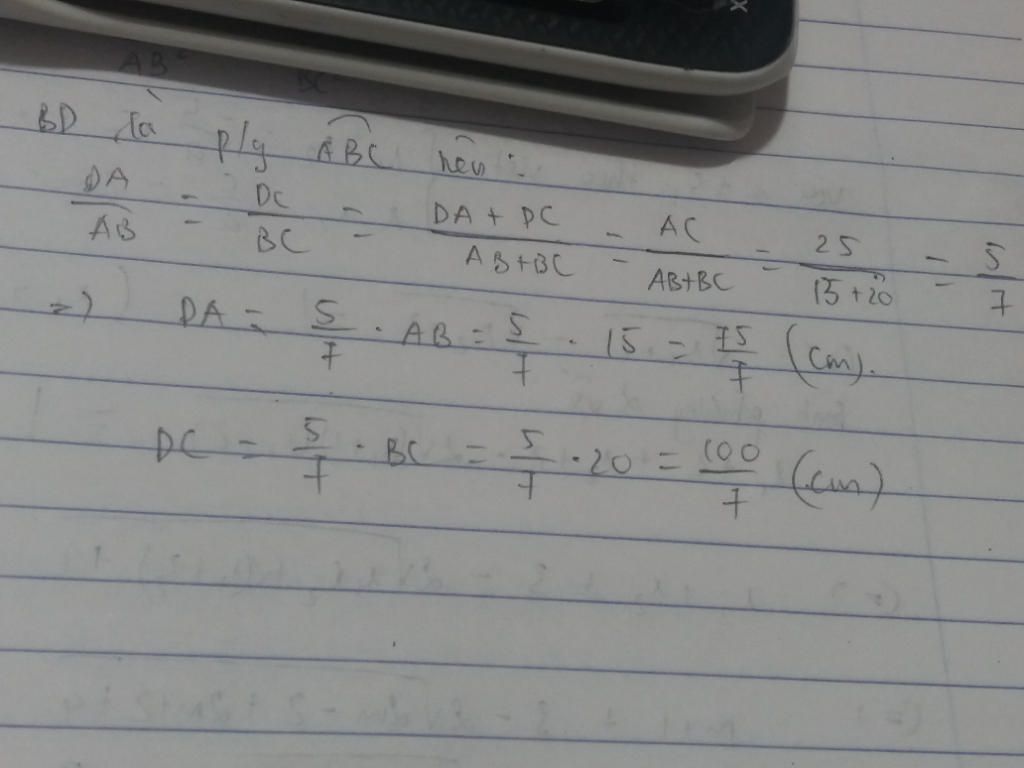 AB
BC
BD là p/g ABC nên :
DA/AB = DC/BC = DA + DC/AB+BC = AC/AB+BC = 25/15+20 = 5/7
=> DA = 5/7 . AB = 5/7 . 15 = 75/7 (cm).
DC = 5/7 . BC = 5/7 . 20 = 100/7 (cm)